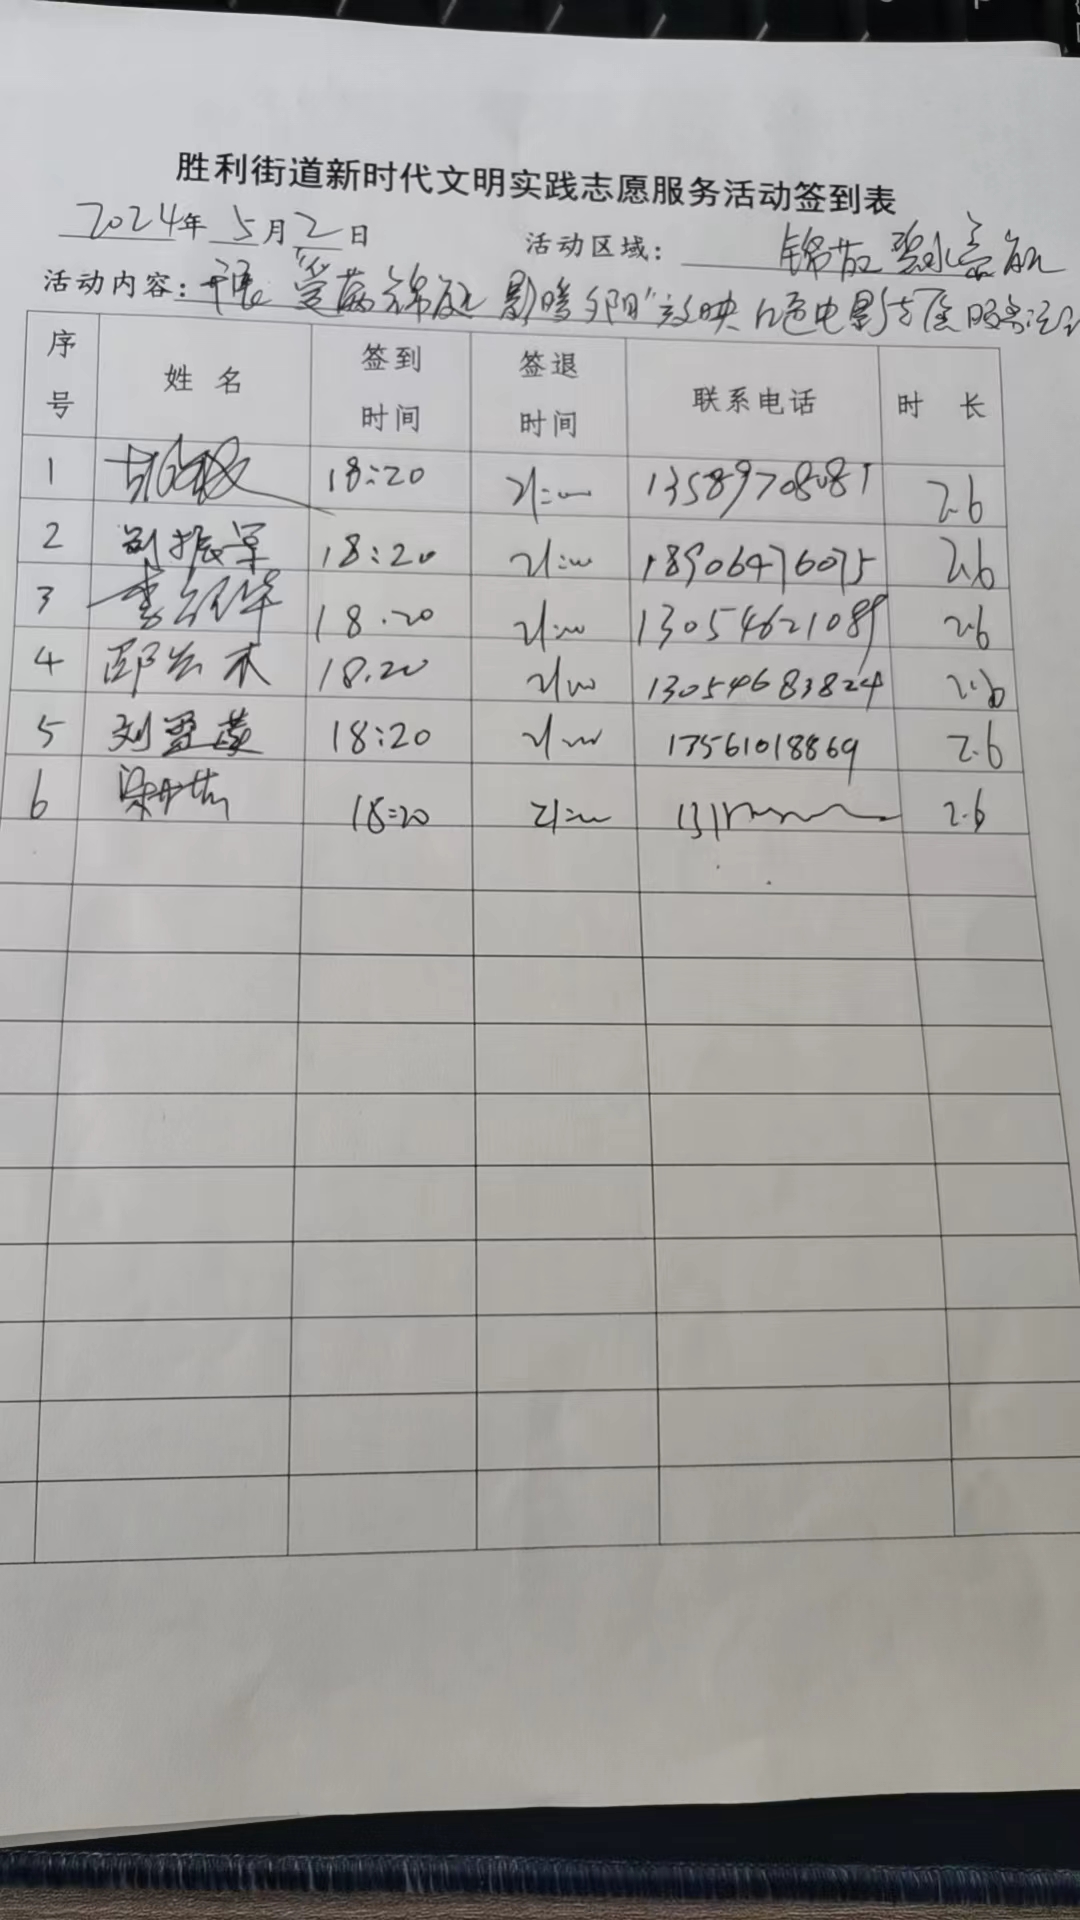 胜利街道新时代文明实践志愿服务活动签到表
2024年 5月2日 活动区域: 锦苑
活动内容: 开展"爱满锦庭 影暖夕阳"放映红色电影志愿服务活动
序号 姓名 签到时间 签退时间 联系电话 时长
1 18:20 21:00 13589708081 2.6
2 刘振军 18:20 21:00 18906476075 2.6
3 18.20 21:00 13054621089 2.6
4 18.20 21:00 13054683824 2.6
5 刘 18:20 21:00 13561018869 2.6
6 梁 18:20 21:00 131 2.6